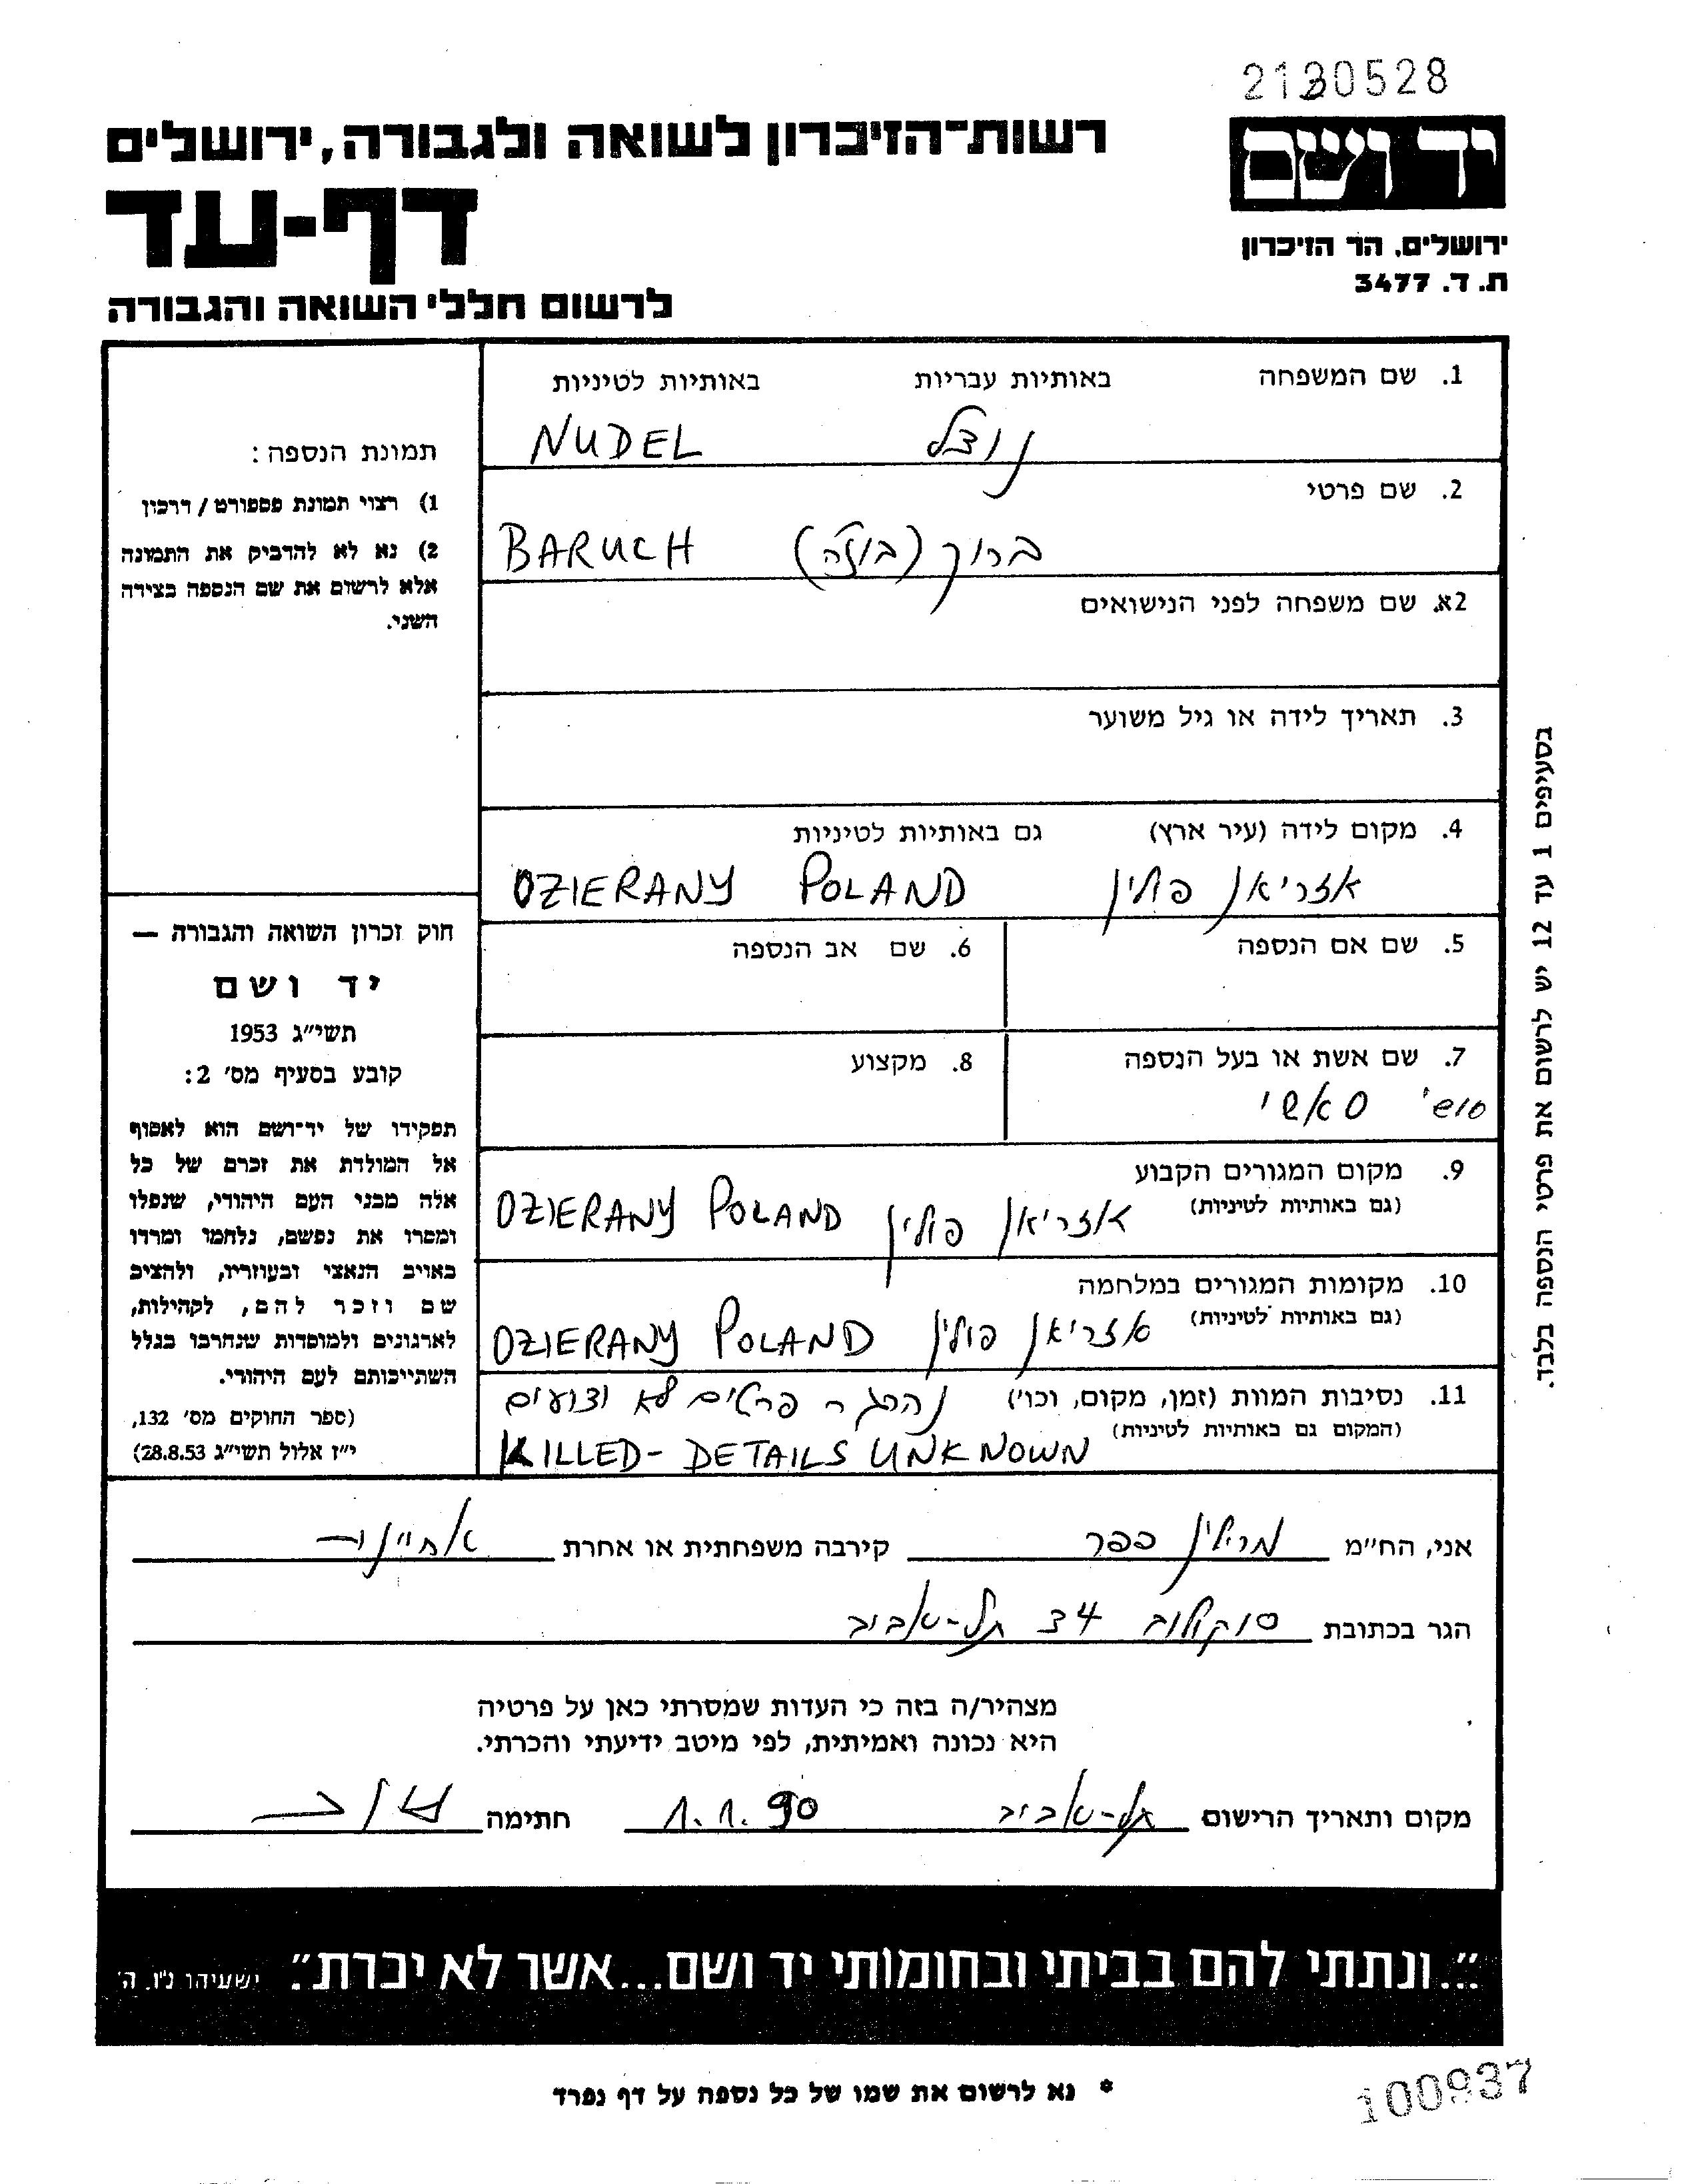 2130528
יד ושם
רשות־הזיכרון לשואה ולגבורה, ירושלים
דף-עד
ירושלים, הר הזיכרון
ת. ד. 3477
לרשום חללי השואה והגבורה
1. שם המשפחה באותיות עבריות באותיות לטיניות
נודל NUDEL
2. שם פרטי
ברוך BARUCH
2א. שם משפחה לפני הנישואים
3. תאריך לידה או גיל משוער
4. מקום לידה (עיר ארץ) גם באותיות לטיניות
אזריאן פולין OZIERANY POLAND
5. שם אם הנספה 6. שם אב הנספה
7. שם אשת או בעל הנספה 8. מקצוע
סושי סאשי
9. מקום המגורים הקבוע
(גם באותיות לטיניות)
אזריאן פולין OZIERANY POLAND
10. מקומות המגורים במלחמה
(גם באותיות לטיניות)
אזריאן פולין OZIERANY POLAND
11. נסיבות המוות (זמן, מקום, וכו') נהרג - פרטים לא ידועים
(המקום גם באותיות לטיניות)
KILLED - DETAILS UNKNOWN
תמונת הנספה:
1) רצוי תמונת פספורט / דרכון
2) נא לא להדביק את התמונה
אלא לרשום את שם הנספה בצידה
השני.
חוק זכרון השואה והגבורה —
יד ושם
תשי״ג 1953
קובע בסעיף מס׳ 2:
תפקידו של יד־ושם הוא לאסוף
אל המולדת את זכרם של כל
אלה מבני העם היהודי, שנפלו
ומסרו את נפשם, נלחמו ומרדו
באויב הנאצי ובעוזריו, ולהציב
שם וזכר להם, לקהילות,
לארגונים ולמוסדות שנחרבו בגלל
השתייכותם לעם היהודי.
(ספר החוקים מס׳ 132,
י״ז אלול תשי״ג 28.8.53)
בסעיפים 1 עד 12 יש לרשום את פרטי הנספה בלבד.
אני, הח״מ מרילין כפר קירבה משפחתית או אחרת אחיינית
הגר בכתובת סוקולוב 34 תל-אביב
מצהיר/ה בזה כי העדות שמסרתי כאן על פרטיה
היא נכונה ואמיתית, לפי מיטב ידיעתי והכרתי.
מקום ותאריך הרישום תל-אביב 1.1.90 חתימה
"...ונתתי להם בביתי ובחומותי יד ושם...אשר לא יכרת". ישעיהו נ״ו, ה׳
* נא לרשום את שמו של כל נספה על דף נפרד
100937